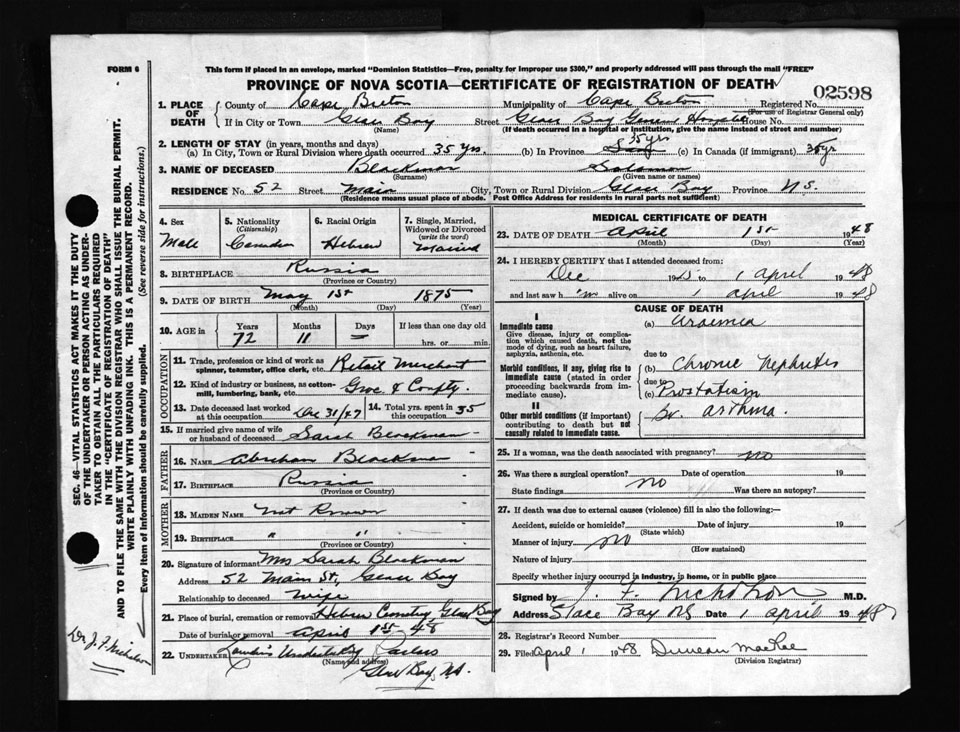 FORM 6
This form if placed in an envelope, marked "Dominion Statistics—Free, penalty for improper use $300," and properly addressed will pass through the mail "FREE"
PROVINCE OF NOVA SCOTIA—CERTIFICATE OF REGISTRATION OF DEATH
02598
1. PLACE OF DEATH County of Cape Breton Municipality of Cape Breton Registered No.
(For use of Registrar General only)
If in City or Town Glace Bay Street Glace Bay General Hospital House No.
(Name) (If death occurred in a hospital or institution, give the name instead of street and number)
2. LENGTH OF STAY (in years, months and days)
(a) In City, Town or Rural Division where death occurred 35 yrs. (b) In Province 35 yrs (c) In Canada (if immigrant) 35 yr
3. NAME OF DECEASED Blackman Solomon
(Surname) (Given name or names)
RESIDENCE No. 52 Street Main City, Town or Rural Division Glace Bay Province N.S.
(Residence means usual place of abode. Post Office Address for residents in rural parts not sufficient)
4. Sex
Male
5. Nationality
(Citizenship)
Canadian
6. Racial Origin
Hebrew
7. Single, Married, Widowed or Divorced
(write the word)
Married
8. BIRTHPLACE Russia
(Province or Country)
9. DATE OF BIRTH May 1st 1875
(Month) (Day) (Year)
10. AGE in Years Months Days If less than one day old
72 11 — hrs. or min.
OCCUPATION
11. Trade, profession or kind of work as spinner, teamster, office clerk, etc. Retail Merchant
12. Kind of industry or business, as cotton-mill, lumbering, bank, etc. Groc. &
13. Date deceased last worked at this occupation Dec 31/47 14. Total yrs. spent in this occupation 35
15. If married give name of wife or husband of deceased Sarah Blackman
FATHER
16. NAME Abraham Blackman
17. BIRTHPLACE Russia
(Province or Country)
MOTHER
18. MAIDEN NAME Not Known
19. BIRTHPLACE " "
(Province or Country)
20. Signature of informant Mrs Sarah Blackman
Address 52 Main St., Glace Bay
Relationship to deceased Wife
21. Place of burial, cremation or removal Hebrew Cemetery Glace Bay
Date of burial or removal April 1st 48
22. UNDERTAKER Undertaking Parlors
(Name and address)
Glace Bay, N.S.
MEDICAL CERTIFICATE OF DEATH
23. DATE OF DEATH April 1st 1948
(Month) (Day) (Year)
24. I HEREBY CERTIFY that I attended deceased from:
Dec to 1 April 1948
and last saw h im alive on 1 April 1948
CAUSE OF DEATH
I
Immediate cause
Give disease, injury or complication which caused death, not the mode of dying, such as heart failure, asphyxia, asthenia, etc.
(a) Uraemia
due to
Morbid conditions, if any, giving rise to immediate cause (stated in order proceeding backwards from immediate cause).
(b) Chronic Nephritis
due to
(c) Prostatism
II
Other morbid conditions (if important) contributing to death but not causally related to immediate cause.
Br. asthma.
25. If a woman, was the death associated with pregnancy? no
26. Was there a surgical operation? Date of operation 19
no
State findings Was there an autopsy?
27. If death was due to external causes (violence) fill in also the following:—
Accident, suicide or homicide? Date of injury 19
(State which)
Manner of injury no
(How sustained)
Nature of injury
Specify whether injury occurred in industry, in home, or in public place
Signed by J. F. Nicholson M.D.
Address Glace Bay NS Date 1 April 1948
28. Registrar's Record Number
29. Filed April 1 1948 Duncan MacRae
(Division Registrar)
SEC. 46—VITAL STATISTICS ACT MAKES IT THE DUTY
OF THE UNDERTAKER OR PERSON ACTING AS UNDERTAKER TO OBTAIN ALL THE PARTICULARS REQUIRED
IN THE "CERTIFICATE OF REGISTRATION OF DEATH"
AND TO FILE THE SAME WITH THE DIVISION REGISTRAR WHO SHALL ISSUE THE BURIAL PERMIT.
WRITE PLAINLY WITH UNFADING INK. THIS IS A PERMANENT RECORD.
Every item of information should be carefully supplied. (See reverse side for instructions.)
Dr. J. F. Nicholson